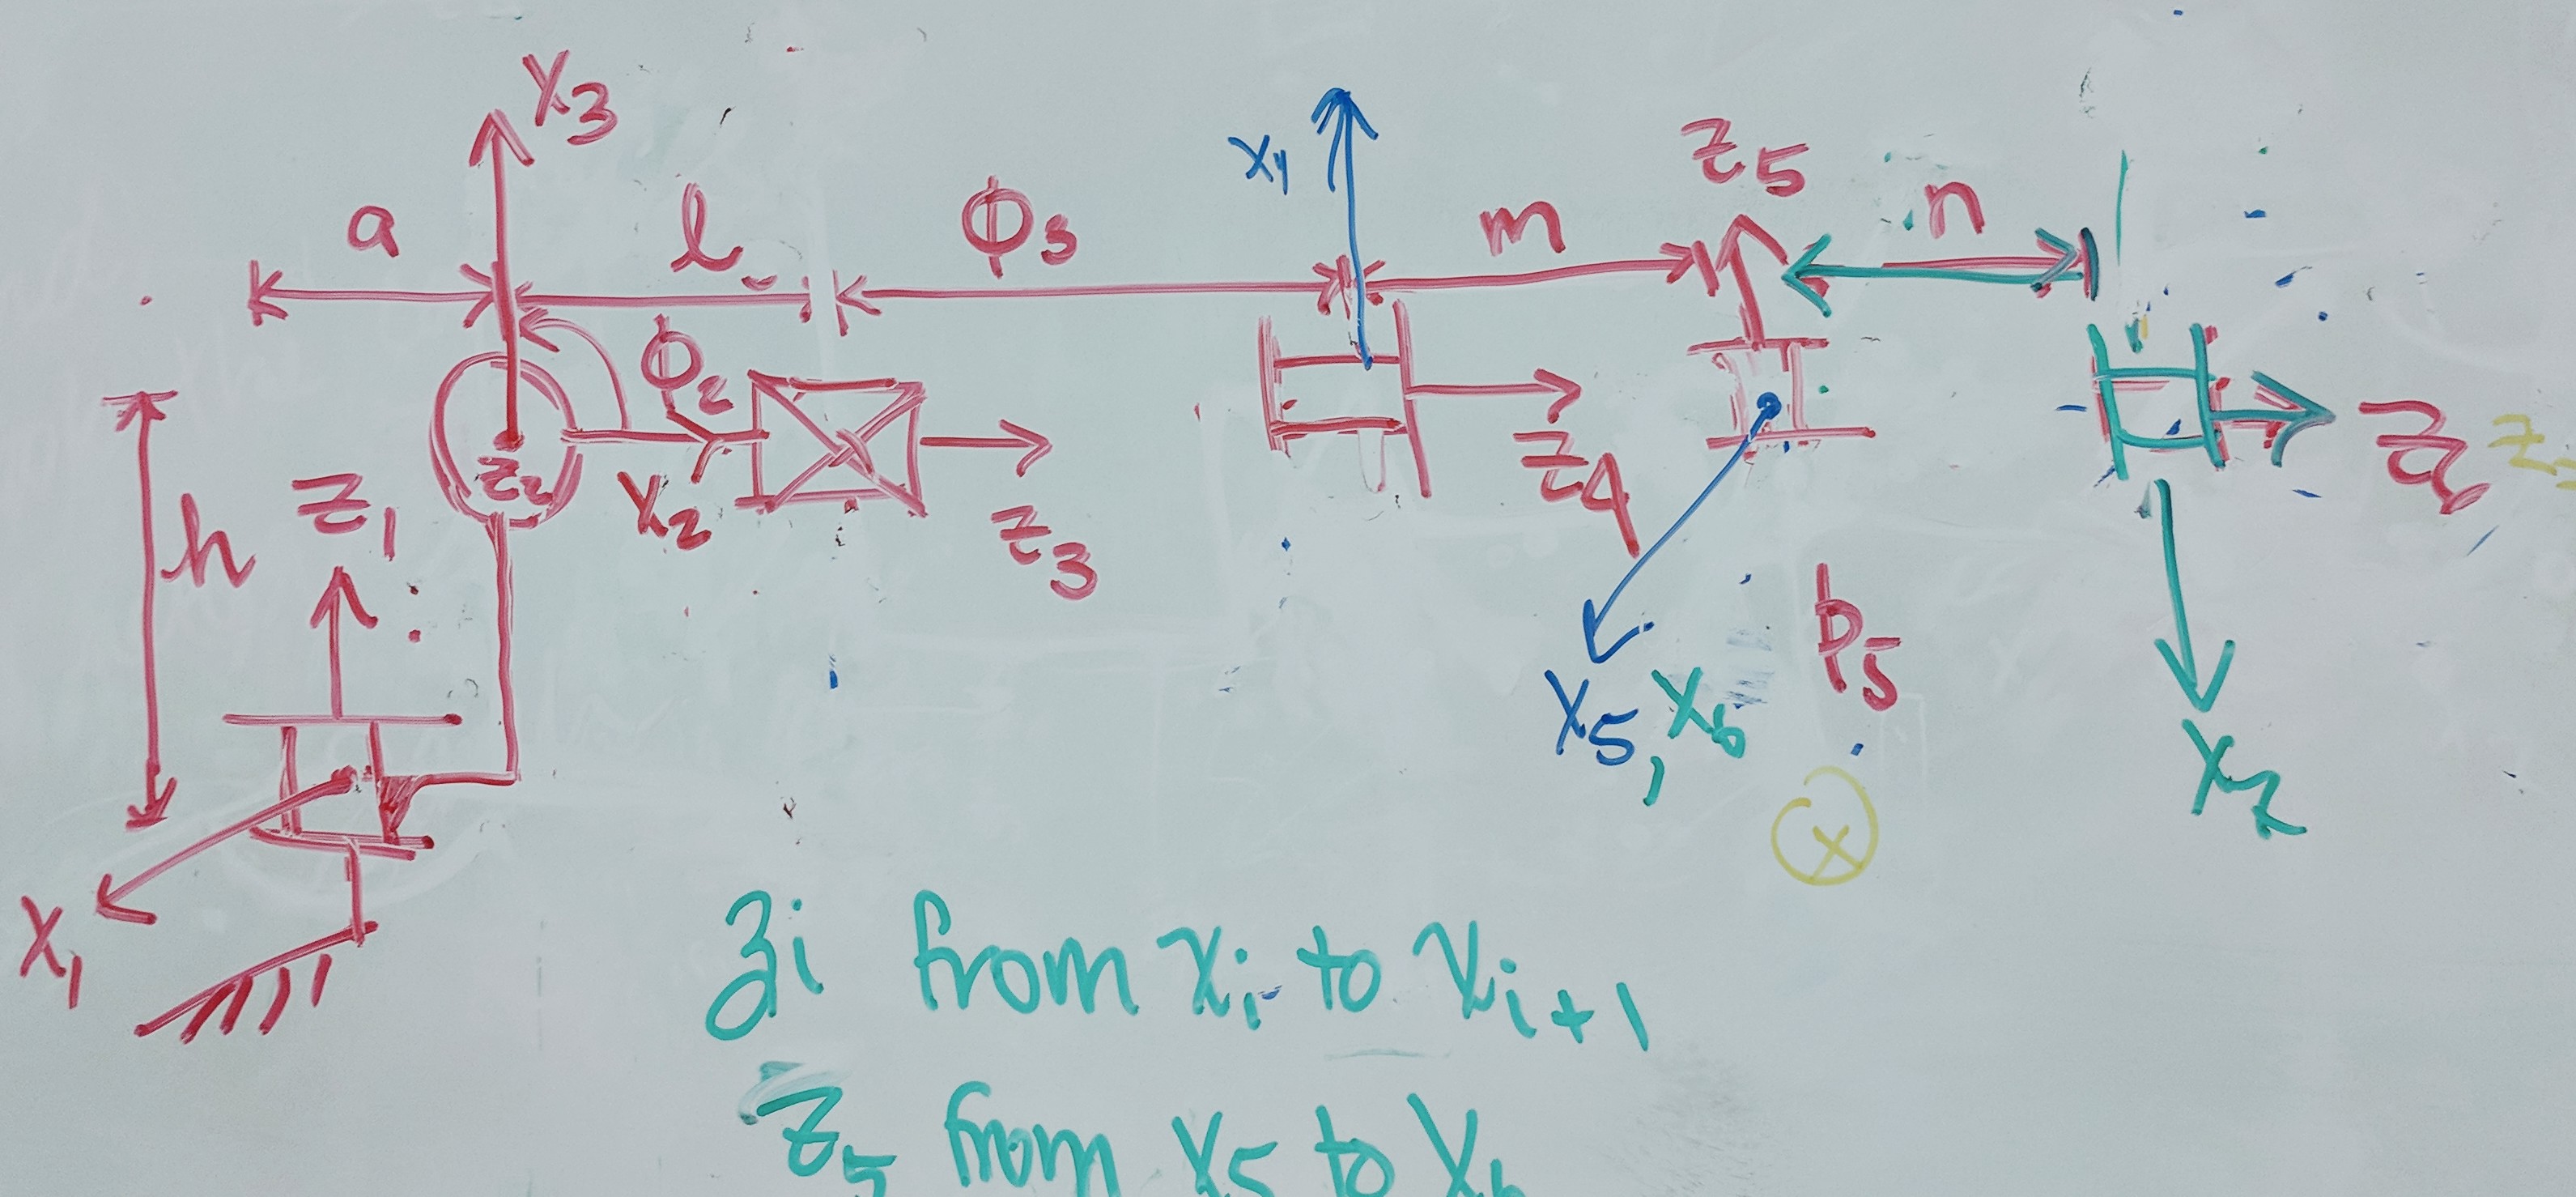 X3
a
l
ϕ3
X4
m
Z5
n
ϕ2
Z2
X2
Z3
Z4
Z6
h
Z1
X1
X5, X6
b5
X
X7
zi from xi to xi+1
Z5 from X5 to X6